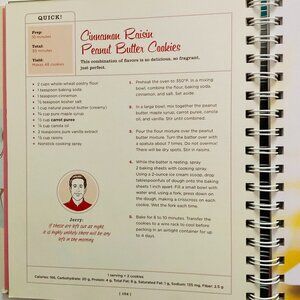 QUICK!
Prep:
10 minutes
Total:
35 minutes
Yield:
Makes 48 cookies
Cinnamon Raisin
Peanut Butter Cookies
This combination of flavors is so delicious, so fragrant,
just perfect.
2 cups whole-wheat pastry flour
1 teaspoon baking soda
1 teaspoon cinnamon
teaspoon kosher salt
cup natural peanut butter (creamy)
cup pure maple syrup
cup carrot puree
cup canola oil
2 teaspoons pure vanilla extract
cup raisins
Nonstick cooking spray
Jerry:
If these are left out at night,
it is highly unlikely there will be any
left in the morning
1. Preheat the oven to 350°F. In a mixing
bowl, combine the flour, baking soda,
cinnamon, and salt. Set aside.
2. In a large bowl, mix together the peanut
butter, maple syrup, carrot puree, canola
oil, and vanilla. Stir until combined.
3. Pour the flour mixture over the peanut
butter mixture. Turn the batter over with
a spatula about 7 times. Do not overmix!
There will be dry spots. Stir in raisins.
4. While the batter is resting, spray
2 baking sheets with cooking spray.
Using a 2-ounce ice cream scoop, drop
tablespoonfuls of dough onto the baking
sheets 1 inch apart. Fill a small bowl with
water and, using a fork, press down on
the dough, making a crisscross on each
cookie. Wet the fork each time.
5. Bake for 8 to 10 minutes. Transfer the
cookies to a wire rack to cool before
packing in an airtight container for up
to 4 days.
1 serving = 2 cookies
Calories: 166, Carbohydrate: 20 g, Protein: 4 g, Total Fat: 8 g, Saturated Fat: 1 g, Sodium: 135 mg, Fiber: 2.5 g